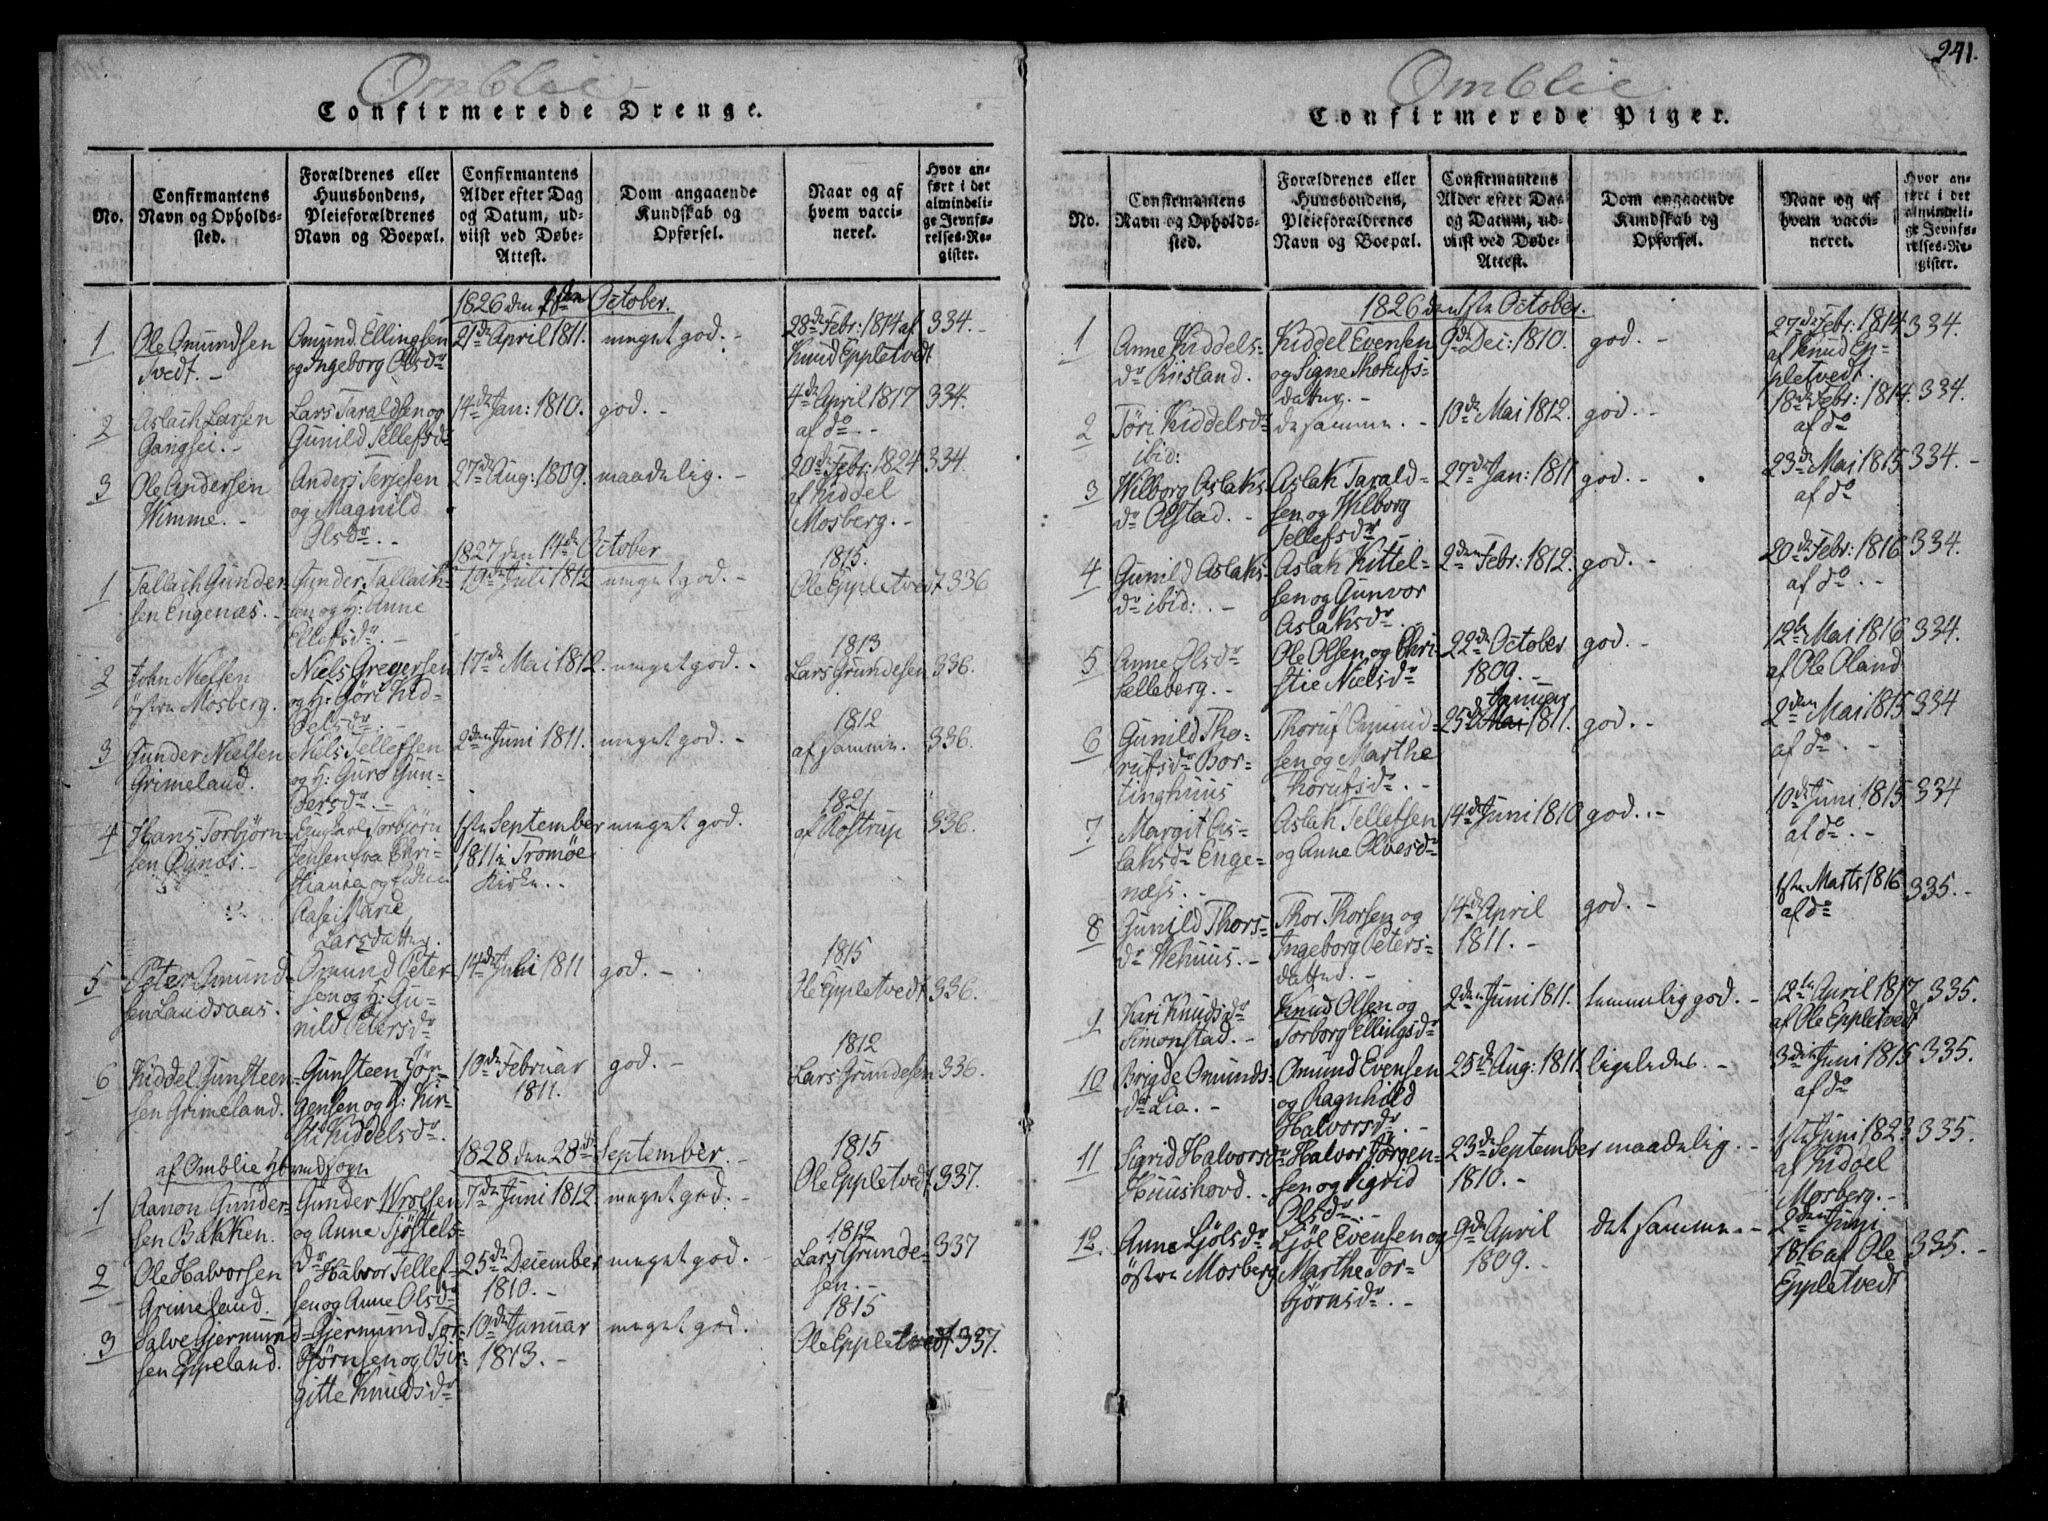 241.
Omblie
Confirmerede Drenge.
No.
Confirmantens
Navn og Opholds-
sted.
Forældrenes eller
Huusbondens,
Pleieforældrenes
Navn og Boepæl.
Confirmantens
Alder efter Dag
og Datum, ud-
viist ved Døbe-
Attest.
Dom angaaende
Kundskab og
Opførsel.
Naar og af
hvem vacci-
neret.
Hvor an-
ført i det
almindeli-
ge Jevnfø-
relses-Re-
gister.
1826 den October.
1
Ole Omundsen
Tvedt. -
Omund Ellingsen
og Ingeborg Olsdr
21de April 1811.
meget god. -
28de Febr: 1814 af
Knud Eppletvedt
334. -
2
Aslach Larsen
Gangsei. -
Lars Taraldsen og
Gunild Tellefsdr
14de Jan: 1810.
god. -
4de April 1817
af do. -
334.
3
Ole Andersen
Wimme. -
Anders Terjesen
og Magnild
Olsdr. -
27de Aug: 1809.
maadelig. -
20de Febr: 1824
af Kiddel
Mosberg. -
334.
1827 den 14de October
1
Tallach Gunder-
sen Engenæs. -
Gunder Tallach-
sen og H: Anne
Ellefsdr. -
19de Juli 1812
meget god. -
1815.
Ole Eppletvedt
336
2
John Nielsen
østre Mosberg.
Niels Greversen
og H: Gøri Kid-
delsdr. -
17de Mai 1812.
meget god. -
1813
Lars Grundesen
336.
3
Gunder Nielsen
Grimeland.
Niels Tellefsen
og H: Guro Gun-
dersdr. -
2den Juni 1811.
meget god. -
1812
af samme.
336.
4
Hans Torbjørn-
sen Øgnæs. -
Torbjørn
Jensen fra Chri-
stiania og
Aase Marie
Larsdatter.
1ste September
1811 i Tromøe
Kirke. .
meget god.
1821
af Rostrup
336.
5
Peter Omund-
sen Landsaas.
Omund Peter-
sen og H: Gu-
nild Petersdr
14de Juli 1811
god. -
1815
Ole Eppletvedt
336.
6
Kiddel Gunsteen-
sen Grimeland.
Gunsteen Jør-
gensen og H: Kir-
sti Kiddelsdr.
10de Februar
1811.
god. -
1812
Lars Grundesen
336.
af Omblie Hovedsogn
1828 den 28de September. -
1
Aanon Gunder-
sen Bakken.
Gunder Wrolsen
og Anne Sjøstels-
dr
7de Juni 1812.
meget god. -
1815
Ole Eppletvedt
337.
2
Ole Halvorsen
Grimeland.
Halvor Tellef-
sen og Anne Olsdr
25de December
1810. -
meget god.
1812
Lars Grunde-
sen. -
337
3
Salve Gjermund-
sen Eppeland.
Gjermund Tor-
bjørnsen og Bir-
gitte Knudsdr
10de Januar
1813. -
meget god.
1815
Ole Eppletvedt
337.
Omblie
Confirmerede Piger.
No.
Confirmantens
Navn og Opholds-
sted.
Forældrenes eller
Huusbondens,
Pleieforældrenes
Navn og Boepæl.
Confirmantens
Alder efter Dag
og Datum, ud-
viist ved Døbe-
Attest.
Dom angaaende
Kundskab og
Opførsel.
Naar og af
hvem vacci-
neret.
Hvor an-
ført i det
almindeli-
ge Jevnfø-
relses-Re-
gister.
1826 den 1ste October.
1
Anne Kiddels-
dr Risland.
Kiddel Evensen
og Signe Thorufs-
datter. -
9de Dec: 1810.
god. -
27de Febr: 1814
af Knud Ep-
pletvedt.
334.
2
Tøri Kiddelsdr
ibid:
de samme. -
10de Mai 1812.
god. -
18de Febr: 1814
af do
334.
3
Wilborg Aslaks-
dr Olstad. -
Aslak Tarald-
sen og Wilborg
Tellefsdr
27de Jan: 1811
god. -
23de Mai 1815
af do
334. -
4
Gunild Aslaks-
dr ibid: . -
Aslak Kittel-
sen og Gunvor
Aslaksdr. -
2den Febr: 1812.
god. -
20de Febr: 1816
af do. -
334.
5
Anne Olsdr
Selleberg. -
Ole Olsen og Chri-
stie Nielsdr
22de October
1809. -
god. -
12te Mai 1816
af Ole Oland
334.
6
Gunild Tho-
rufsdr Bor-
tinghuus
Thoruf Omund-
sen og Marthe
Thorufsdr. -
Januar
25de Mai 1811.
god. -
2den Mai 1815
af do. -
334
7
Margit As-
laksdr Enge-
næss. -
Aslak Tellefsen
og Anne Olvesdr
14de Juni 1810
god. -
10de Juni 1815
af do. -
334
8
Gunild Thors-
dr Wehuus. -
Thor Thorsen og
Ingeborg Peters-
datter. -
14de April
1811. -
god. -
1ste Marts 1816
af do
335. -
9
Kari Knudsdr
Simonstad. -
Knud Olsen og
Torborg Ellingsdr
2den Juni 1811.
temmelig god. -
12te April 1817
af Ole Eppletvedt
335.
10
Brigde Omunds-
dr Lia. -
Omund Evensen
og Ragnhild
Halvorsdr. -
25de Aug: 1811.
ligeledes. -
3die Juni 1815
af do
335.
11
Sigrid Halvorsdr
Huushovd. -
Halvor Jørgen-
sen og Sigrid
Olsdr. -
23de September
1810. -
maadelig. -
1ste Juni 1823
af Kiddel
Mosberg. -
335.
12.
Anne Ljølsdr
østre Mosberg
Ljøl Evensen og
Marthe Tor-
bjørnsdr. -
9de April
1809. -
det samme. -
2den Juni
1816 af Ole
Eppletvedt
335. -